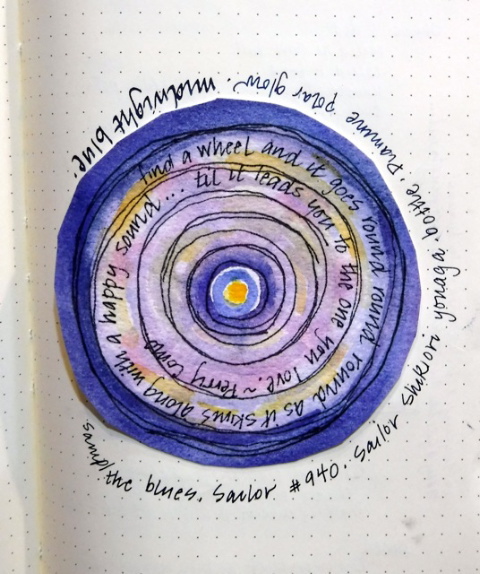 find a wheel and it goes round round round as it skims along with a happy sound...
til it leads you to the one you love. ~ Perry Como
the blues. Sailor #940. Sailor Shikiori yonaga. bottle. Diamine polar glow. midnight blue